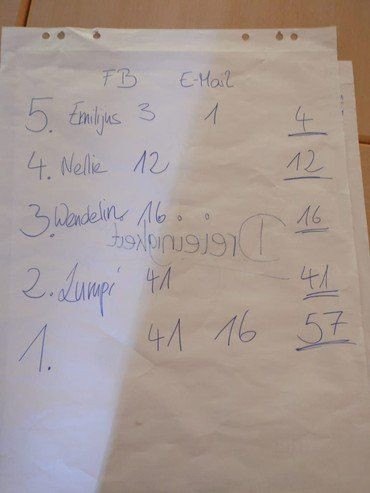 FB E-Mail
5. Emilijus 3 1 4
4. Nellie 12 12
3. Wendelin 16 16
Dreieinigkeit
2. Lumpi 41 41
1. 41 16 57